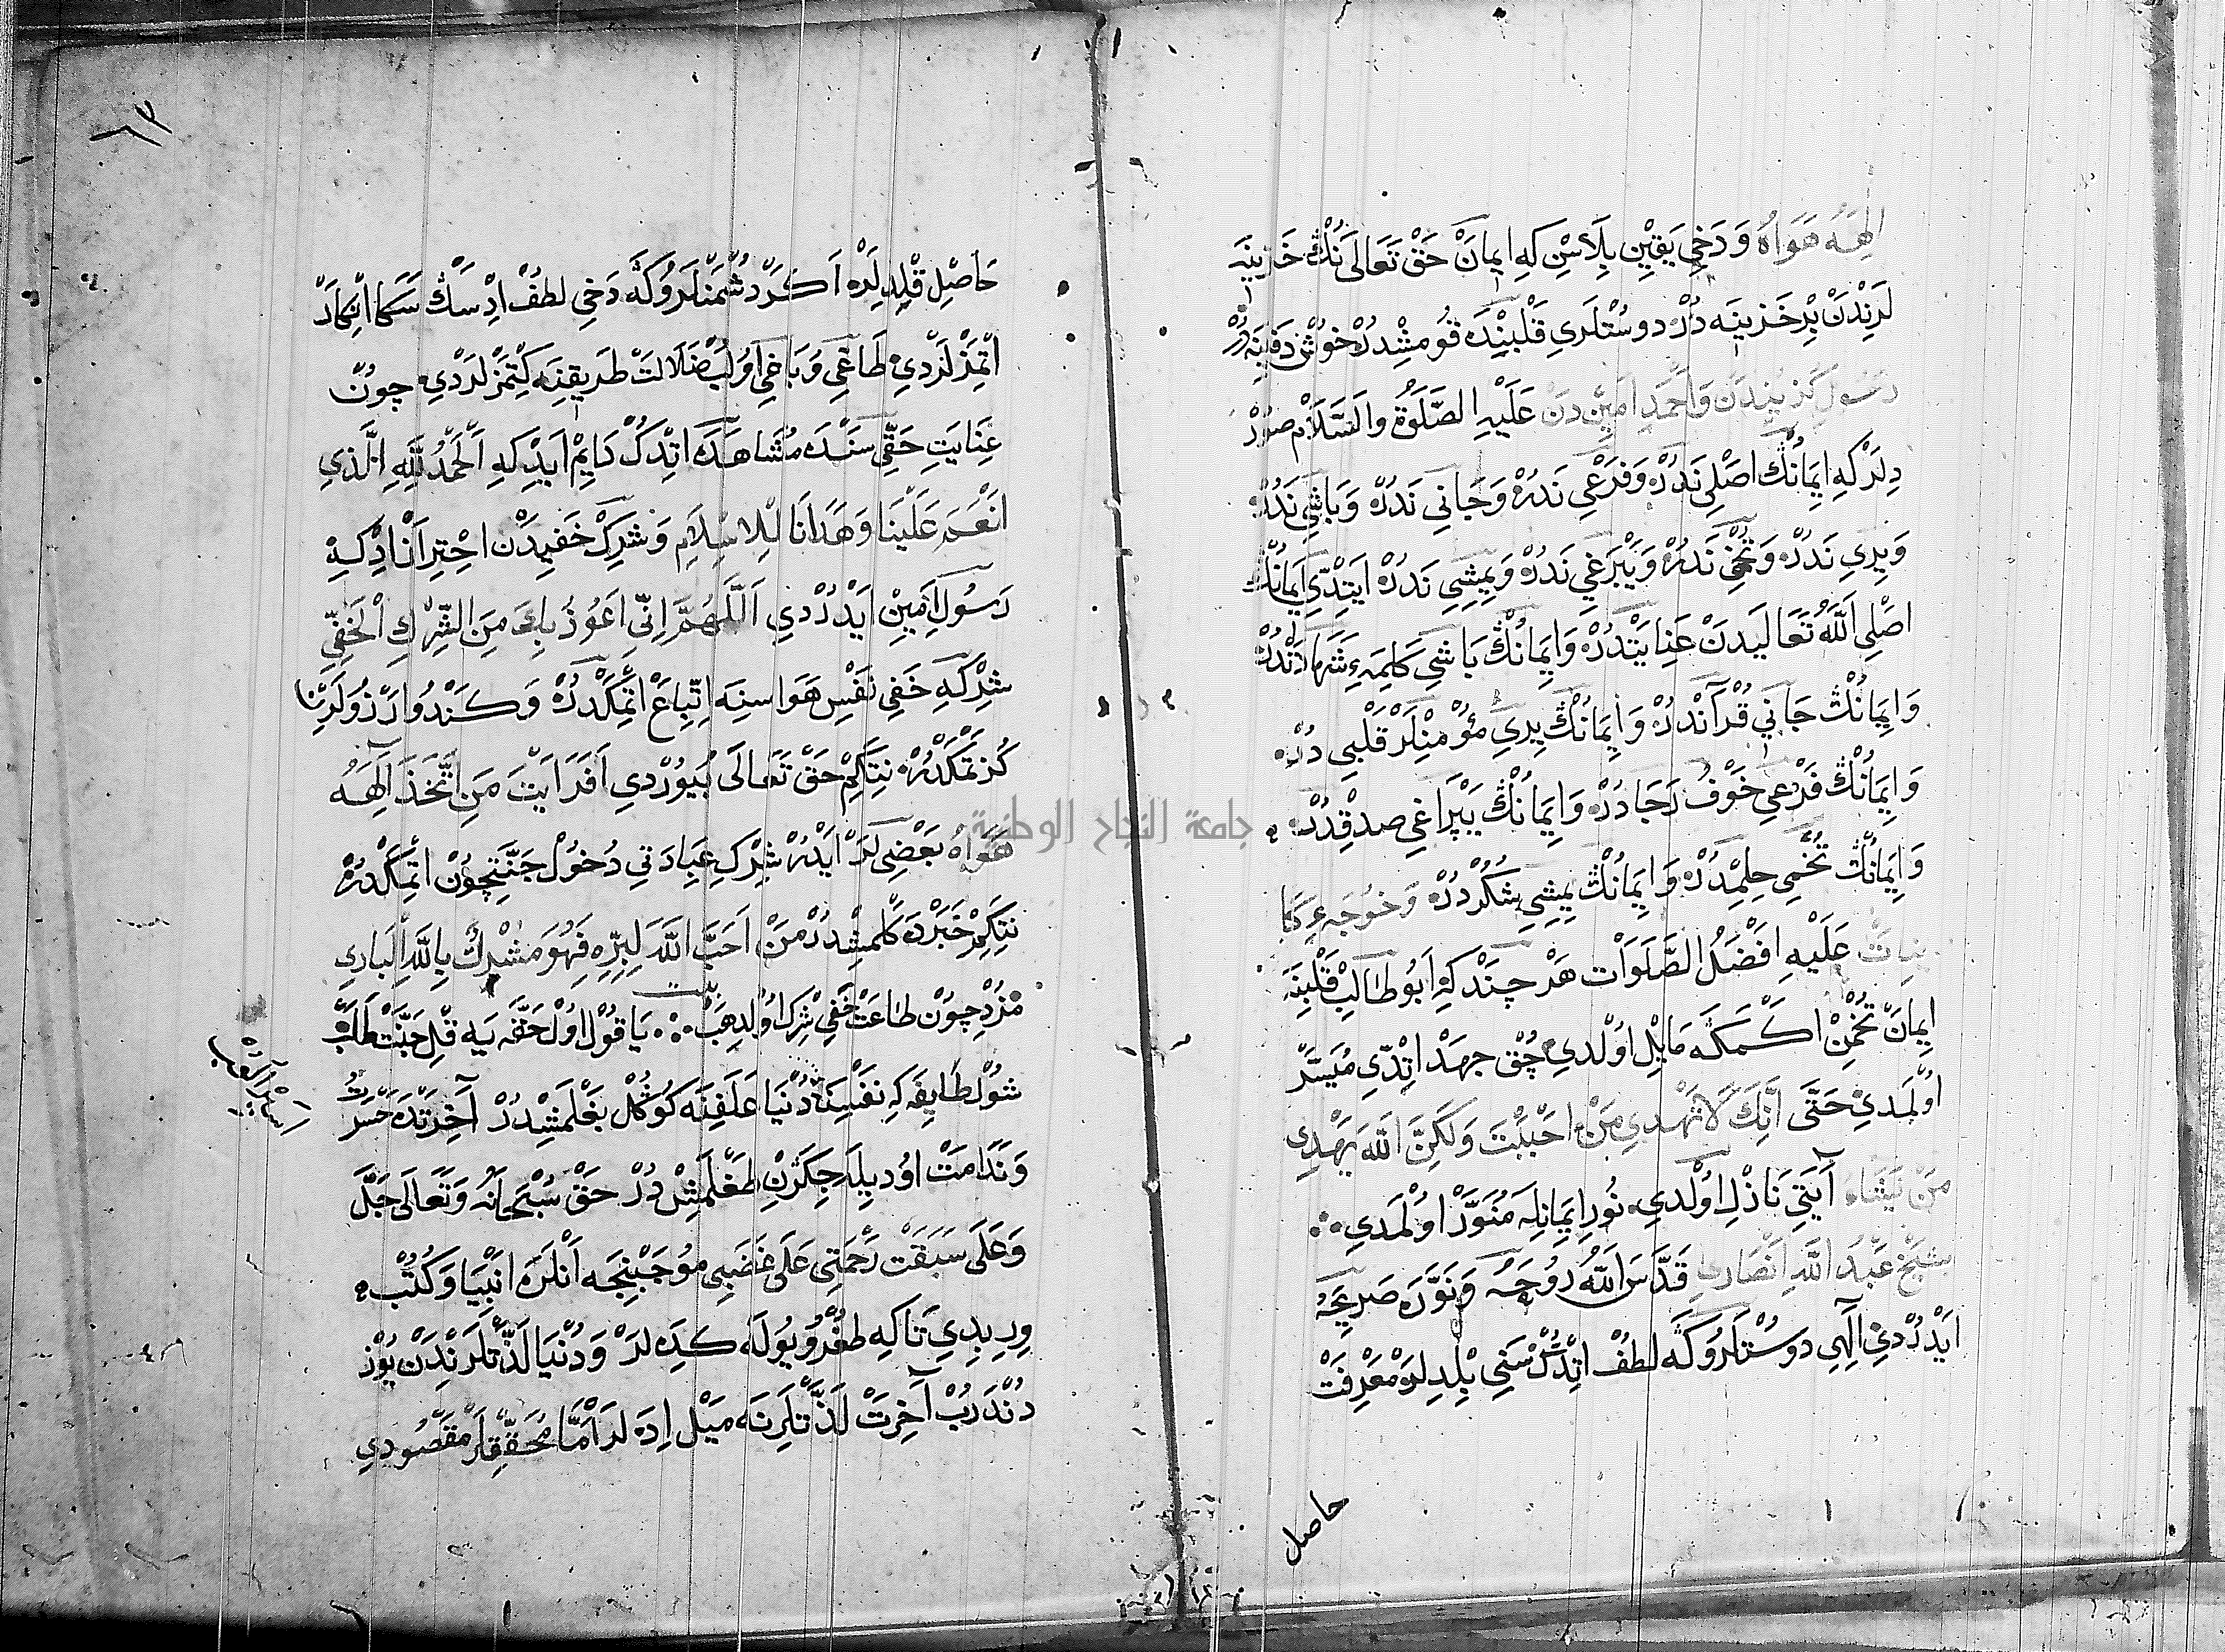 اِلٰهَهُ هَوَاهُ وَدَخِي يَقِيْن بِلَاسِنْ كِه اِيمَانْ حَقْ تَعَالَى نُڭْ خَزِينَه
لَرِنْدَنْ بِرْ خَزِينَه دُرْ دُوسْتْلَرِي قَلْبِنْدَه قُومِشْدِرْ خُوشْ دَفِينَه دُرْ
رَسُولِ كُزِينْدَنْ وَاَحْمَدِ اَمِيْن دَنْ عَلَيْهِ الصَّلَوةُ وَالسَّلَامْ صُوْرْ
دِلَرْ كِه اِيمَانُڭْ اَصْلِي نَدُرْ وَفَرْعِي نَدُرْ وَجَانِي نَدُرْ وَبَاشِي نَدُرْ
وَيِرِي نَدُرْ وَتُخْمِي نَدُرْ وَيَپْرَغِي نَدُرْ وَيِمِشِي نَدُرْ اَيِتْدِي اِيمَانُڭْ
اَصْلِي اللّٰهُ تَعَالَيدَنْ عِنَايَتْدُرْ وَاِيمَانُڭْ بَاشِي كَلِمَۀِ شَهَادَتْدُرْ
وَاِيمَانُڭْ جَانِي قُرْآنْدُرْ وَاِيمَانُڭْ يِرِي مُؤْمِنْلَرْ قَلْبِي دُرْ
وَاِيمَانُڭْ فَرْعِي خَوْفُ رَجَا دُرْ وَاِيمَانُڭْ يَپْرَاغِي صِدْقِدُرْ
وَاِيمَانُڭْ تُخْمِي حِلِمْدُرْ وَاِيمَانُڭْ يِمِشِي شُكُرْدُرْ وَخُوجَۀِ كَا
ينَاتْ عَلَيْهِ اَفْضَلُ الصَّلَوَاتْ هَرْ چَنْدْ كِه اَبُو طَالِبْ قَلْبِنَه
اِيمَانْ تُخْمِنْ اَكْمَكَه مَايِلْ اُوْلْدِي چُقْ جَهَدْ اِتْدِي مُيَسَّرْ
اُولْمَدِي حَتَّى اِنَّكَ لَا تَهْدِي مَنْ اَحْبَبْتَ وَلَكِنَّ اللّٰهَ يَهْدِي
مَنْ يَشَاءُ آيَتِي نَازِلْ اُوْلْدِي نُورِ اِيمَانِلَه مُنَوَّرْ اُوْلْمَدِي
شَيْخْ عَبْدُ اللّٰهِ اَنْصَارِي قَدَّسَ اللّٰهُ رُوحَهُ وَنَوَّرَ ضَرِيحَهُ
اَيْدُرْدِي اِلٰهِي دُوسْتْلَرُوكَه لُطْفْ اِتْدُڭْ سَنِي بِلْدِلَرْ مَعْرِفَتْ
حاصل
حَاصِلْ قِلْدِلَرْ اَكَرْ دُشْمَنْلَرُوكَه دَخِي لُطُفْ اِدْسَڭْ سَڭَا اِنْكَارْ
اِتْمَزْلَرْدِي طَاغِي وَبَاغِي اُولُبْ ضَلَالَتْ طَرِيقِنَه كِتْمَزْلَرْدِي چُونْ
عِنَايَتِ حَقِّي سَنْدَه مُشَاهَدَه اِتْدُڭْ دَايِمْ اَيِدْ كِه اَلْحَمْدُ لِلّٰهِ الَّذِي
اَنْعَمَ عَلَيْنَا وَهَدَانَا لِلْاِسْلَامِ وَشِرْكِ خَفِيدَنْ اِحْتِرَازْ اِدْ كِه
رَسُولِ اَمِينْ اَيْدُرْدِي اَللّٰهُمَّ اِنِّي اَعُوذُ بِكَ مِنَ الشِّرْكِ الْخَفِيِّ
شِرْكِ خَفِي نَفْسِ هَوَاسِنَه اِتِّبَاعْ اِتْمَكْدُرْ وَكَنْدُو اَرْزُولَرِنْ
كُزَتْمَكْدُرْ نِتَكِمْ حَقْ تَعَالَى بُيُورْدِي اَفَرَاَيْتَ مَنِ اتَّخَذَ اِلٰهَهُ
هَوَاهُ بَعْضِي لَرْ اَيْدُرْ شِرْكِ عِبَادَتِي دُخُولِ جَنَّتِچُونْ اِتْمَكْدُرْ
نِتَكِمْ خَبَرْدَه كَلْمِشْدُرْ مَنْ اَحَبَّ اللّٰهَ لِبِرِّهِ فَهُوَ مُشْرِكٌ بِاللّٰهِ الْبَارِي
مُزْدِچُونْ طَاعَتْ خَفِي شِرْك اُولْدِ هَپْ يَا قُولْ اُوْلْ حَقَّه يَه قِلْ جَنَّتْ طَلَبْ
شُوْلْ طَايِفَه كِه نَفْسِنَه دُنْيَا عَلَفِنَه كُوڭُلْ بَغْلَمِشْدُرْ آخِرَتْدَه حَسْرَتْ
وَنَدَامَتْ اُودِيلَه جِكَرِنْ طَغْلَمِشْ دُرْ حَقْ سُبْحَانَهُ وَتَعَالَى جَلَّ
وَعَلَى سَبَقَتْ رَحْمَتِي عَلَى غَضَبِي مُوجَبِنْجَه اَنْلَرَه اَنْبِيَا وَكُتُبْ
وِيرِبِدِي تَا كِه طُغْرُو يُولَه كِدَه لَرْ وَدُنْيَا لَذَّتْلَرِنْدَنْ يُوزْ
دُنْدَرُبْ آخِرَتْ لَذَّتْلَرِنَه مَيْلْ اِدَه لَرْ اَمَّا مُحَقِّقْلَرْ مَقْصُودِي